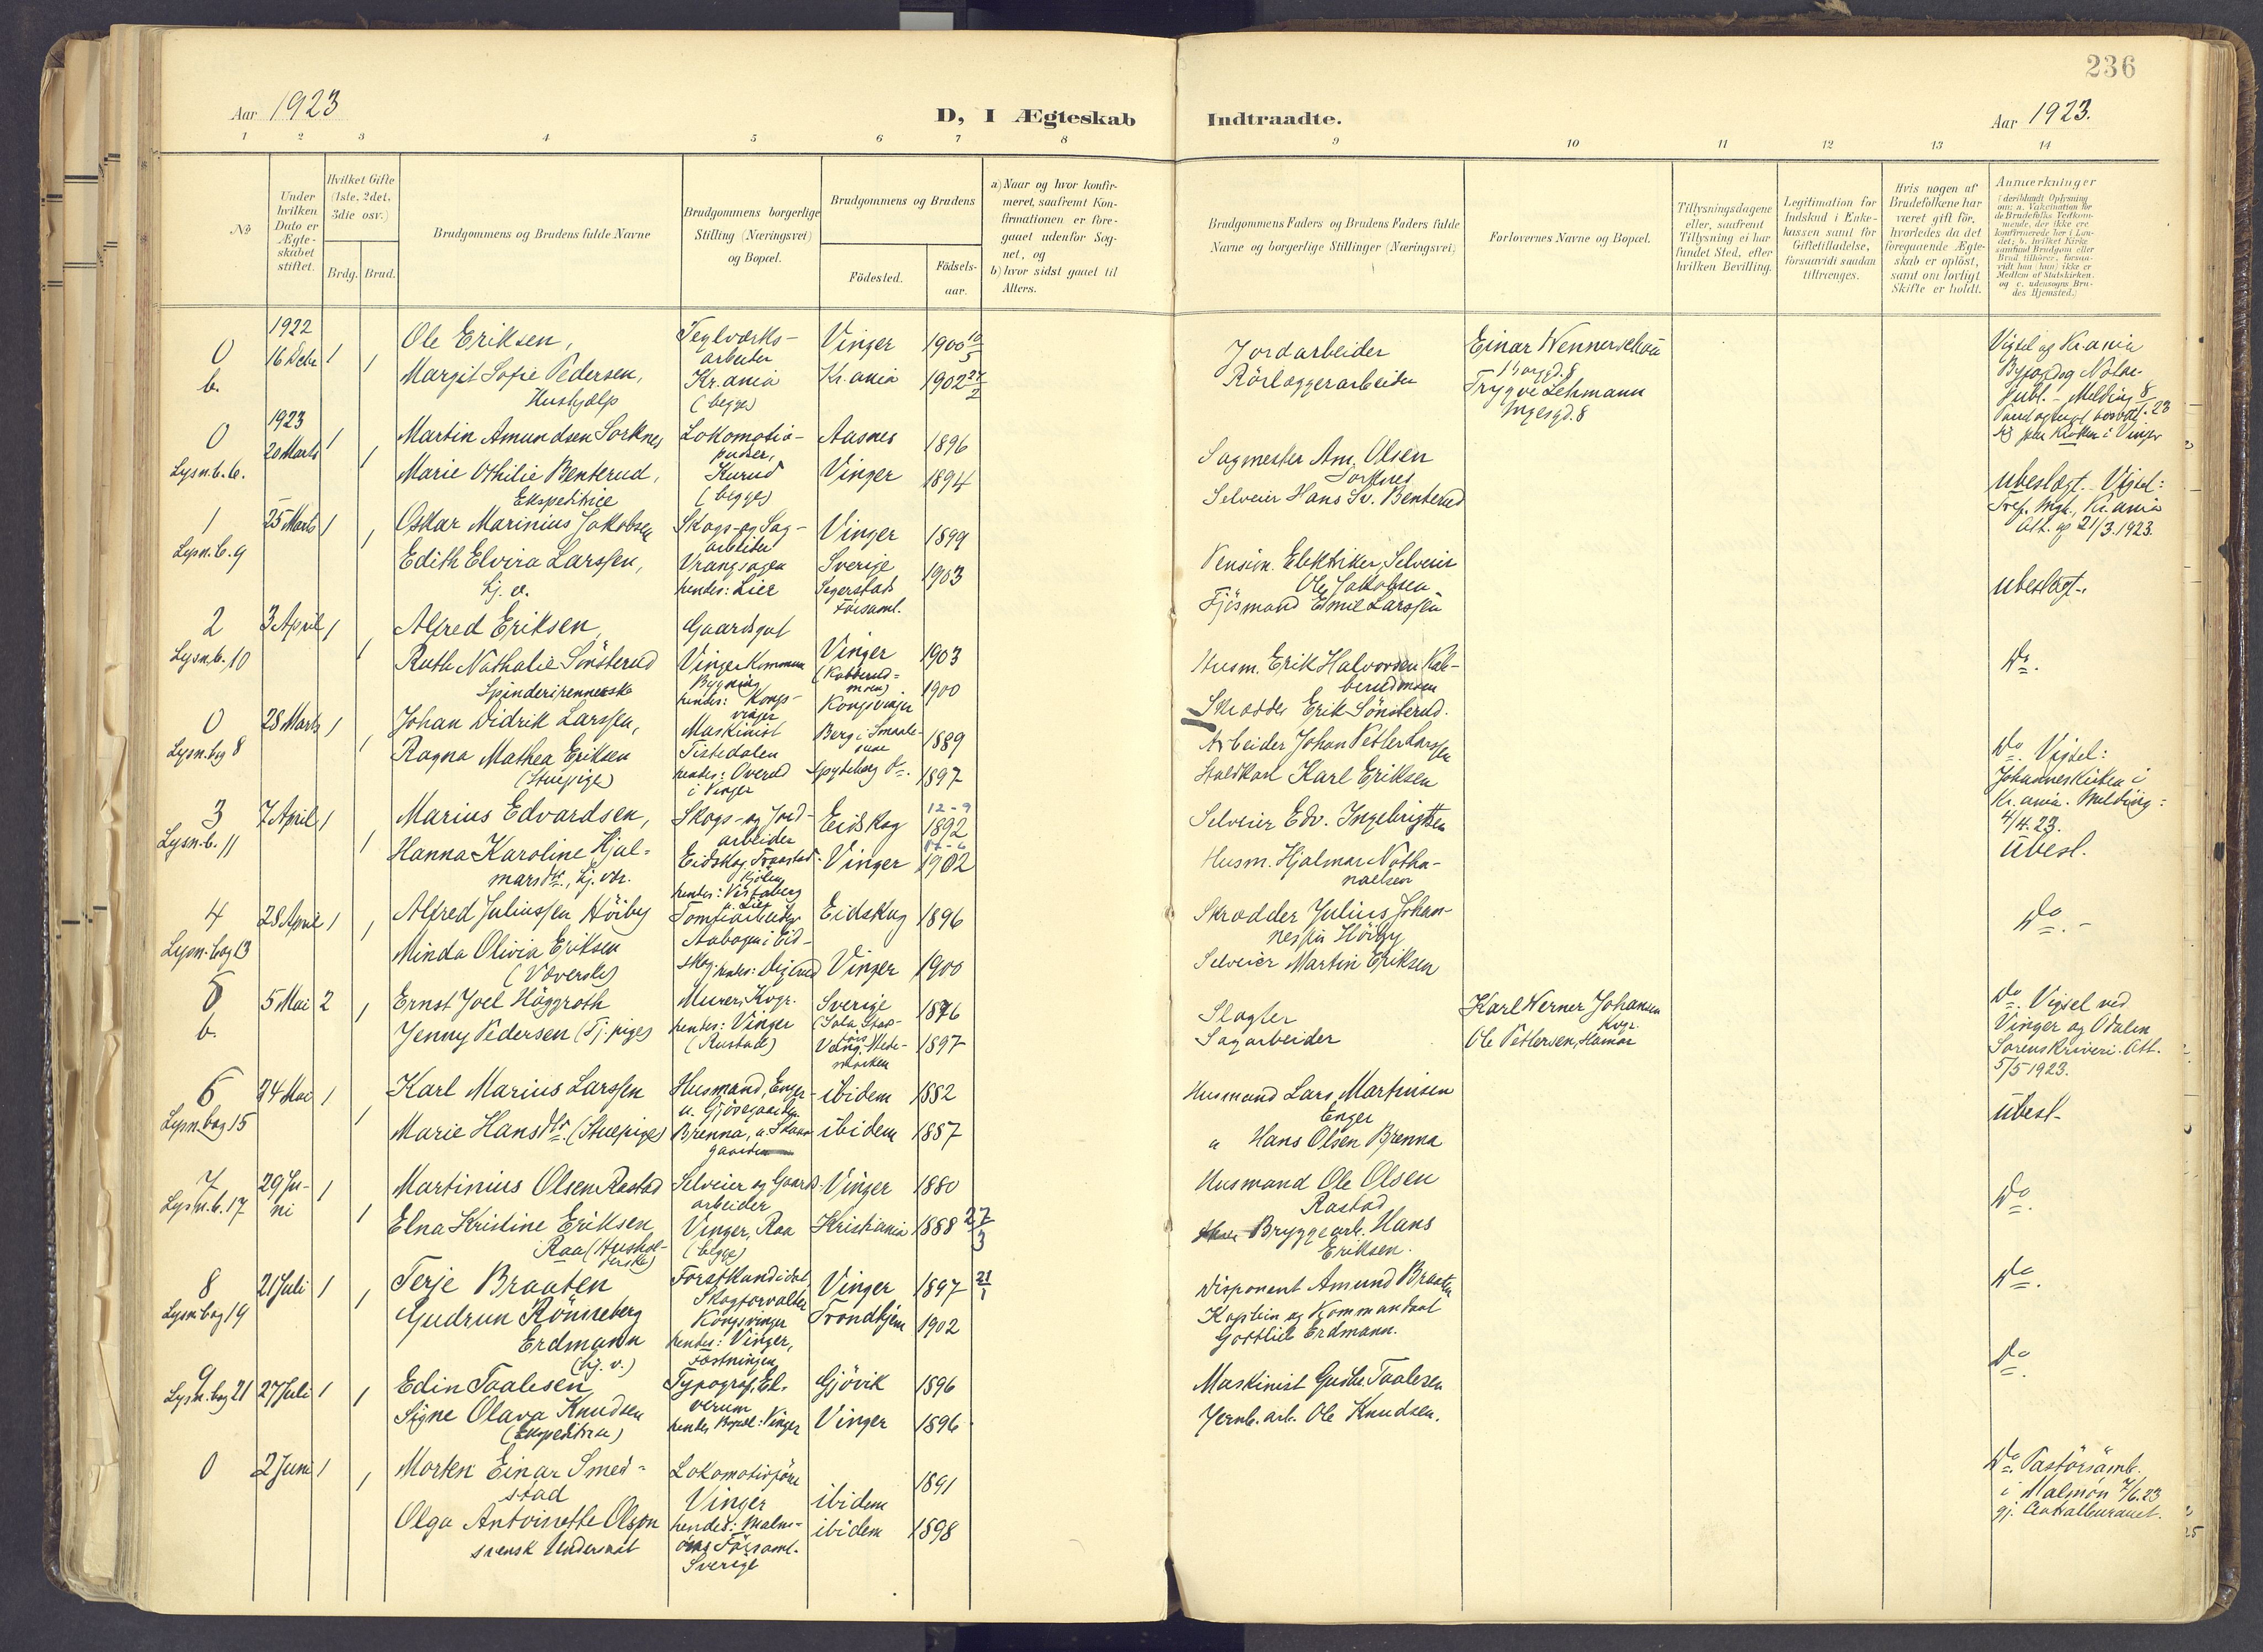 236
Aar 1923
D, I Ægteskab Indtraadte.
Aar 1923.
1 2 3 4 5 6 7 8 9 10 11 12 13 14
No
Under hvilken Dato er Ægte-skabet stiftet.
Hvilket Gifte (1ste, 2det, 3die osv.)
Brdg. Brud.
Brudgommens og Brudens fulde Navne
Brudgommens borgerlige Stilling (Næringsvei) og Bopæl.
Brudgommens og Brudens
Födested.
Födsels-aar.
a) Naar og hvor konfir-
meret, saafremt Kon-
firmationen er fore-
gaaet udenfor Sog-
net, og
b) hvor sidst gaaet til
Alters.
Brudgommens Faders og Brudens Faders fulde
Navne og borgerlige Stillinger (Næringsvei)
Forlovernes Navne og Bopæl.
Tillysningsdagene
eller, saafremt
Tillysning ei har
fundet Sted, efter
hvilken Bevilling.
Legitimation for
Indskud i Enke-
kassen samt for
Giftetilladelse,
forsaavidt saadan
tiltrænges.
Hvis nogen af
Brudefolkene har
været gift för,
hvorledes da det
foregaaende Ægte-
skab er oplöst,
samt om lovligt
Skifte er holdt.
Anmærkninger
(deriblandt Oplysning
om: a. Vakcination for
de Brudefolks Vedkom-
mende, der ikke ere
konfirmerede her i Lan-
det; b. hvilket Kirke-
samfund Brudgom eller
Brud tilhörer, forsaa-
vidt han (hun) ikke er
Medlem af Statskirken.
og c. udensogns Bru-
des Hjemsted.)
0
b.
1922
16 Decbr 1 1
Ole Eriksen,
Margit Sofie Pedersen,
Hushjælp
Teglværks-
arbeider
Kr.ania
(begge)
Vinger 1900 10/5
Kr.ania 1902 27/2
Jordarbeider
Rörlæggerarbeider
Einar Wennerschou
Trygve Lehmann
Vigsel og Kr.ania
Byfogd og Notar.
Publ. - Melding 8/
0
Lysn.b. 6.
1923
20 Marts 1 1
Martin Amundsen Sorknes
Marie Othilie Benterud,
Ekspeditrice
Lokomotiv-
pudser,
Kurud
(begge)
Aasnes 1896
Vinger 1894
Sagmester Am. Olsen
Sorknes
Selveier Hans Sv. Benterud
ubeslægt. Vigsel:
Tref. Mgh., Kr.ania
Att. af 21/3.1923.
1
Lysn.b. 9
25 Marts 1 1
Oskar Marinius Jakobsen
Edith Elvira Larssen,
hj. v.
Skogs- og Sag-
arbeider
Vrangsagen
hendes: Lier
Vinger 1899
Sverige 1903
Segerstads
Församl.
Pension. Elektriker, Selveier
Ole Jakobsen
Fjösmand Emil Larssen
ubeslægt.
2
Lysn.b. 10
3 April 1 1
Alfred Eriksen
Ruth Nathalie Sönsterud
Spinderipennerske
Gaardsgut
Vinger Kommun
Bygning
hendes: Kongs-
vinger
Vinger 1903
(Kabberud-
moen)
Kongsvinger 1900
Husm. Erik Halvorsen Kab-
berudmoen
Skrædder Erik Sönsterud.
Do.
0
Lysn.bog 8
28 Marts 1 1
Johan Didrik Larssen,
Ragna Mathea Eriksen
(Stuepige)
Maskinist
Tistedalen
hendes: Overud
i Vinger
Berg i Smaale-
nene 1889
Spydeberg do. 1897
Arbeider Johan Petter Larssen
Staldkarl Karl Eriksen
Do. Vigsel:
Johanneskirken i
Kr.ania. Melding:
4/4.23.
3
Lysn.b. 11
7 April 1 1
Marius Edvardsen,
Hanna Karoline Hjal-
marsdtr., hj. vær.
Skogs- og Jord-
arbeider
Eidskog
Eidskog 12-9 1892
Vinger 1902
Selveier Edv. Ingebrigtsen
Husm. Hjalmar Natha-
naelsen
ubesl.
4
Lysn.bog 13
28 April 1 1
Alfred Juliussen Höiby
Minda Olivia Eriksen
(Væverske)
Tomtearbeider
Aabogen i Eid-
skog
Eidskog 1896
Vinger 1900
Skrædder Julius Johan-
nessen Höiby
Selveier Martin Eriksen
Do. -
5
b.
5 Mai 2 1
Ernst Joel Höggroth
Jenny Pedersen (Tj.pige)
Murer, Kvgr.
hendes: Vinger
(Rustad)
Sverige 1876
Vang. Hede-
marken 1897
Slagter
Sagarbeider
Karl Werner Johansen
Kvgr.
Ole Pettersen, Hamar
Do. Vigsel ved
Vinger og Odalen
Sorenskriveri. Att.
5/5 1923.
6
Lysn.bog 15
24 Mai 1 1
Karl Marius Larssen
Marie Hansdtr. (Stuepige)
Husmand, Enger
u. Gjösegaarden
Brenna, u. Skans-
gaarden
ibidem 1882
ibidem 1887
Husmand Lars Martinsen
Enger
" Hans Olsen Brenna
ubesl.
7
Lysn.b. 17
29 Ju-
ni 1 1
Martinius Olsen Rastad
Elna Kristine Eriksen
Raa (Hushol-
derske)
Selveier og Gaards-
arbeider
Vinger, Raa
(begge)
Vinger 1880
Kristiania 1888 27/3
Husmand Ole Olsen
Rastad
Bryggearb. Hans
Eriksen.
Do.
8
Lysn.bog 19
21 Juli 1 1
Terje Braaten
Gudrun Rönneberg
Erdmann
(hj. v.)
Forstkandidat,
Skogforvalter
Kongsvinger
hendes: Vinger,
Fæstningen
Vinger 1897 21/1
Trondhjem 1902
Disponent Amund Braaten
Kaptein og Kommandant
Gottlieb Erdmann.
Do.
9
Lysn.bog 21
27 Juli 1 1
Edin Taalesen
Signe Olava Knudsen
(Ekspeditrice)
Typograf, El-
verum
hendes Bopæl: Vinger
Gjövik 1896
Vinger 1896
Maskinist Gudbr. Taalesen
Jernb. arb. Ole Knudsen.
Do.
0
2 Juni 1 1
Morten Einar Smed-
stad
Olga Antoinette Olsson
svensk Undersaat
Lokomotivförer
Vinger
hendes: Malm-
öns Församl.
Sverige
ibidem 1891
ibidem 1898
Do. Pastorsämb.
i Malmön 7/6.23
gj. Centralbureauet.